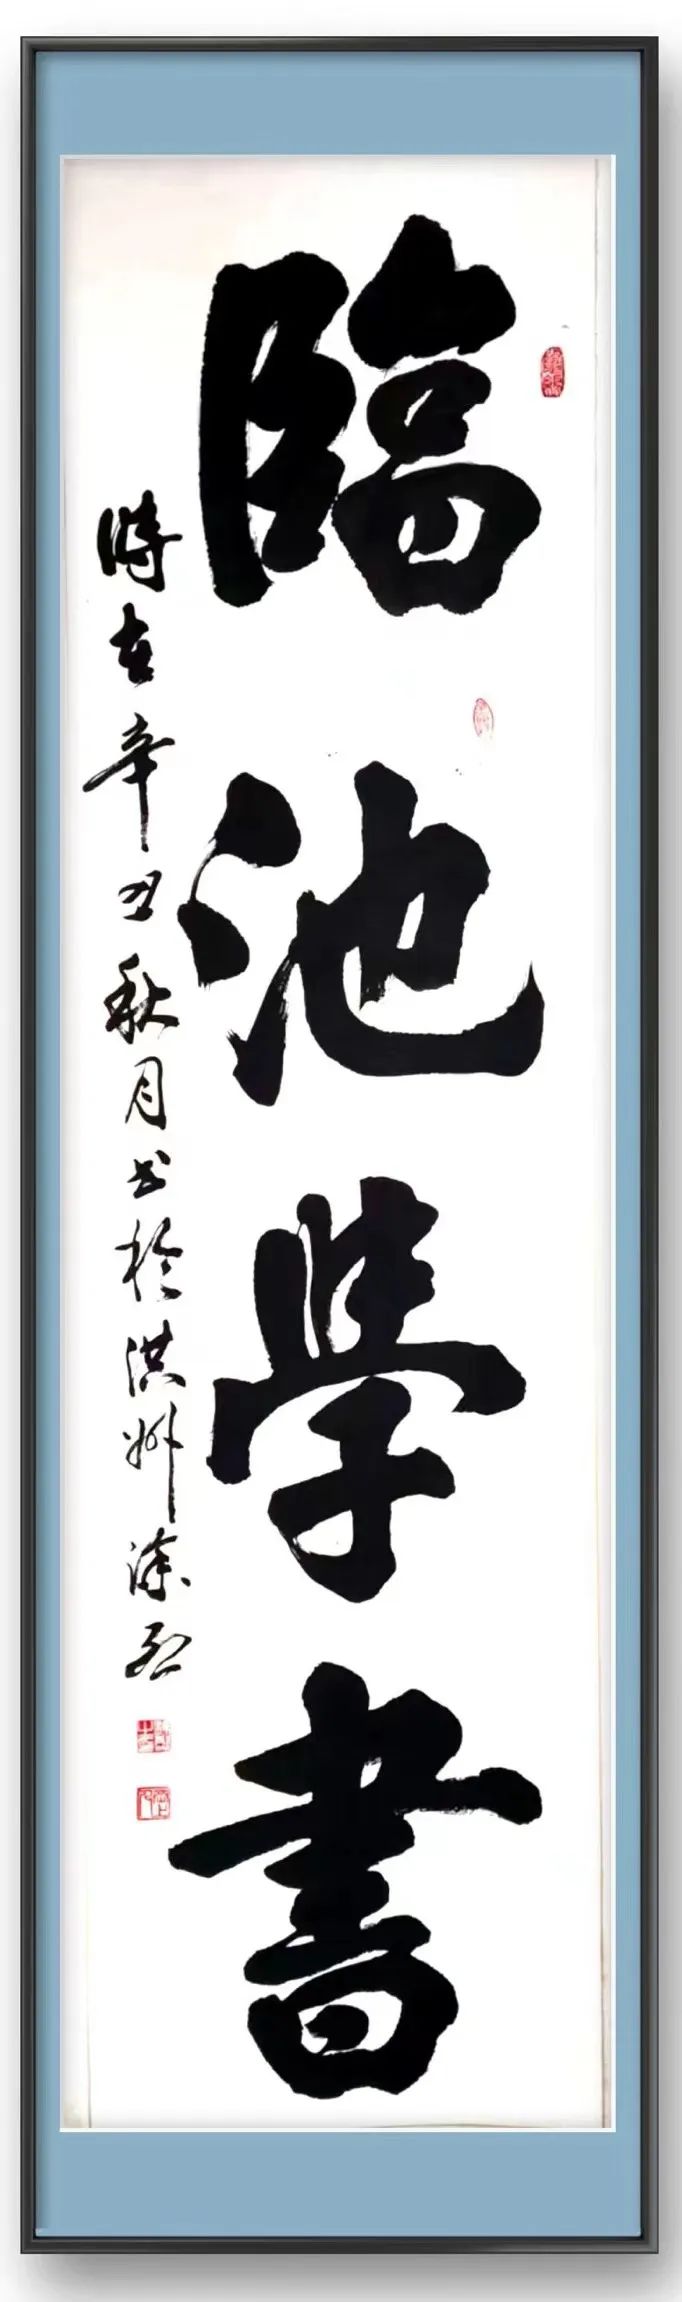 臨池學書
時在辛丑秋月书於洪州涂烈